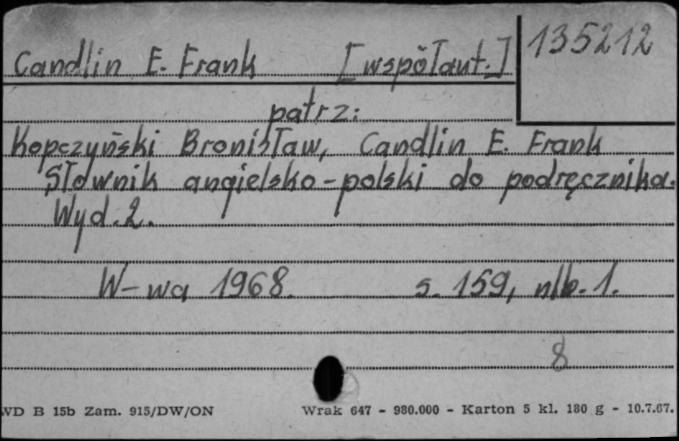 Candlin E. Frank [współaut.]
135212
patrz:
Kopczyński Bronisław, Candlin E. Frank
Słownik angielsko-polski do podręcznika.
Wyd. 2.
W-wa 1968. s. 159, nlb. 1.
8
WD B 15b Zam. 915/DW/ON Wrak 647 - 980.000 - Karton 5 kl. 180 g - 10.7.67.